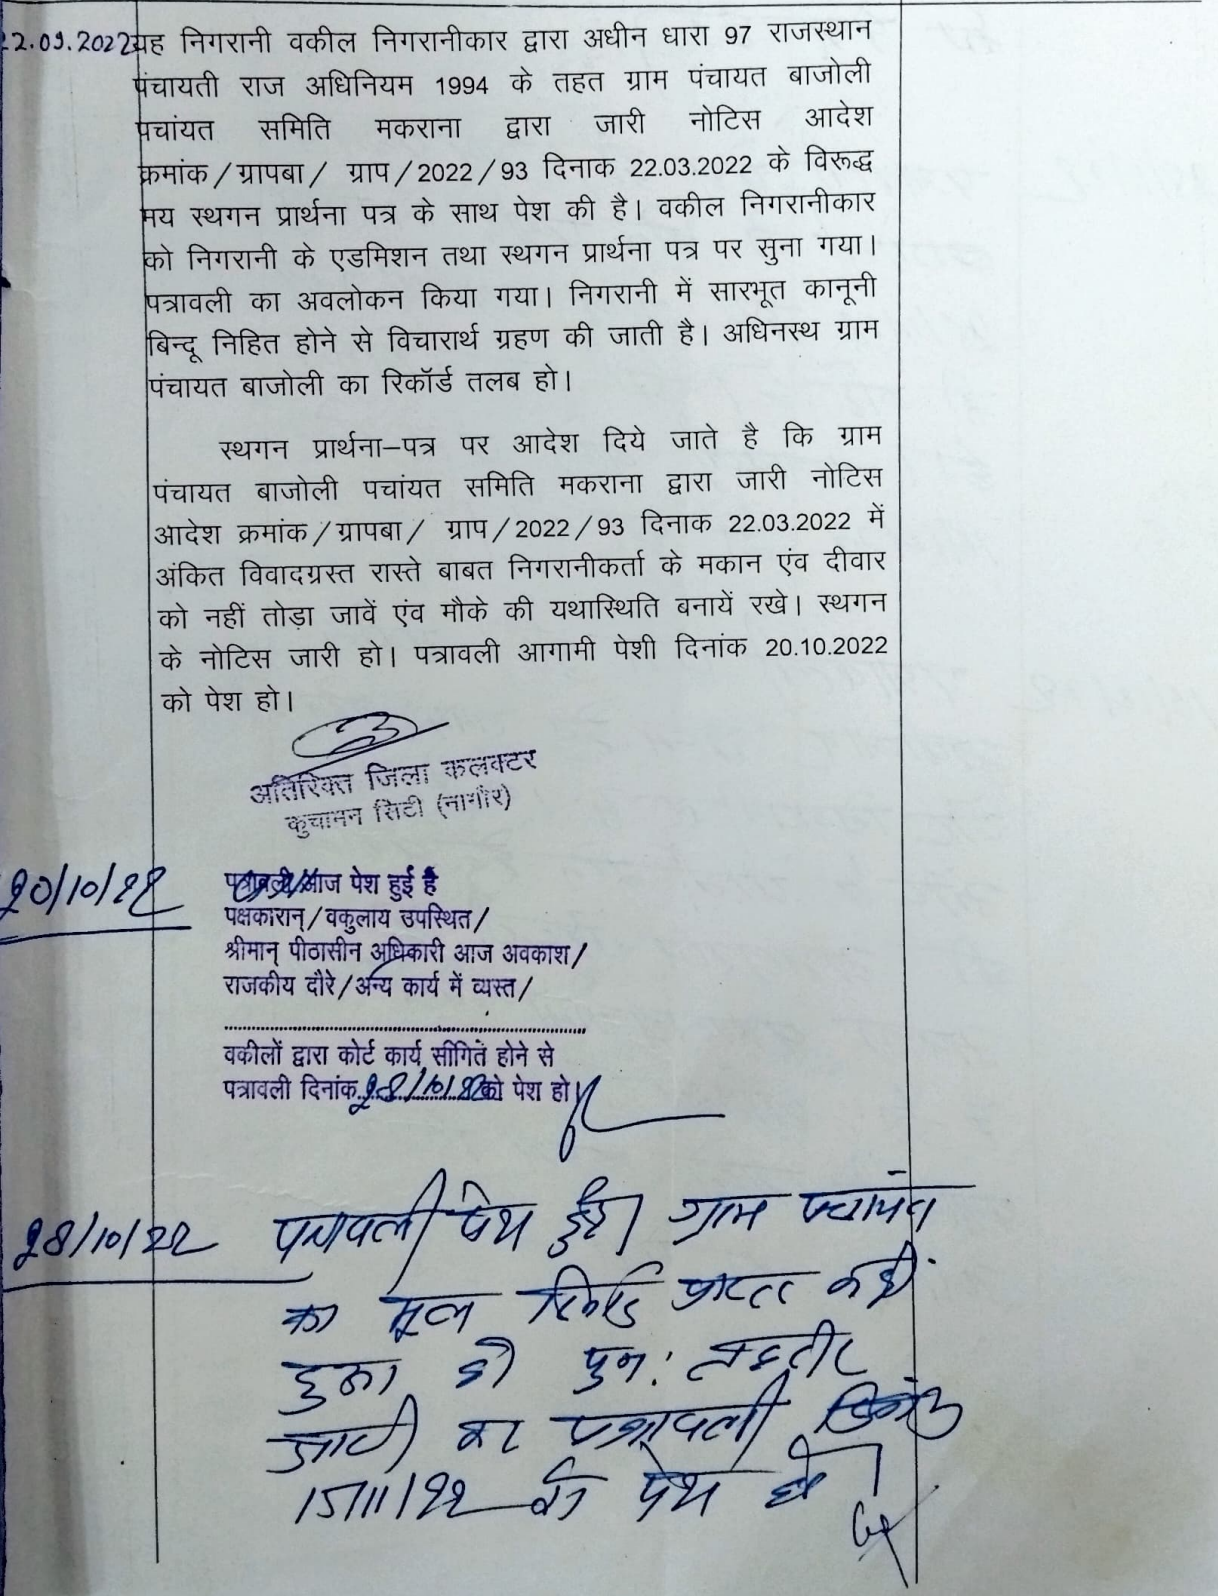 22.09.2022 यह निगरानी वकील निगरानीकार द्वारा अधीन धारा 97 राजस्थान
पंचायती राज अधिनियम 1994 के तहत ग्राम पंचायत बाजोली
पचांयत समिति मकराना द्वारा जारी नोटिस आदेश
क्रमांक/ग्रापबा/ ग्राप/2022/93 दिनाक 22.03.2022 के विरूद्ध
मय स्थगन प्रार्थना पत्र के साथ पेश की है। वकील निगरानीकार
को निगरानी के एडमिशन तथा स्थगन प्रार्थना पत्र पर सुना गया।
पत्रावली का अवलोकन किया गया। निगरानी में सारभूत कानूनी
बिन्दू निहित होने से विचारार्थ ग्रहण की जाती है। अधिनस्थ ग्राम
पंचायत बाजोली का रिकॉर्ड तलब हो।
स्थगन प्रार्थना–पत्र पर आदेश दिये जाते है कि ग्राम
पंचायत बाजोली पचांयत समिति मकराना द्वारा जारी नोटिस
आदेश क्रमांक/ग्रापबा/ ग्राप/2022/93 दिनाक 22.03.2022 में
अंकित विवादग्रस्त रास्ते बाबत निगरानीकर्ता के मकान एंव दीवार
को नहीं तोड़ा जावें एंव मौके की यथास्थिति बनायें रखे। स्थगन
के नोटिस जारी हो। पत्रावली आगामी पेशी दिनांक 20.10.2022
को पेश हो।
अतिरिक्त जिला कलक्टर
कुचामन सिटी (नागौर)
20/10/22 पत्रावली आज पेश हुई है
पक्षकारान्/वकुलाय उपस्थित/
श्रीमान् पीठासीन अधिकारी आज अवकाश/
राजकीय दौरे/अन्य कार्य में व्यस्त/
वकीलों द्वारा कोर्ट कार्य सीगित होने से
पत्रावली दिनांक 28/10/22 को पेश हो।
28/10/22 पत्रावली पेश हुई। ग्राम पंचायत
का मूल रिकॉर्ड प्राप्त नहीं
हुआ है पुन: तहरीर
जारी कर पत्रावली दिनांक
15/11/22 को पेश हो।